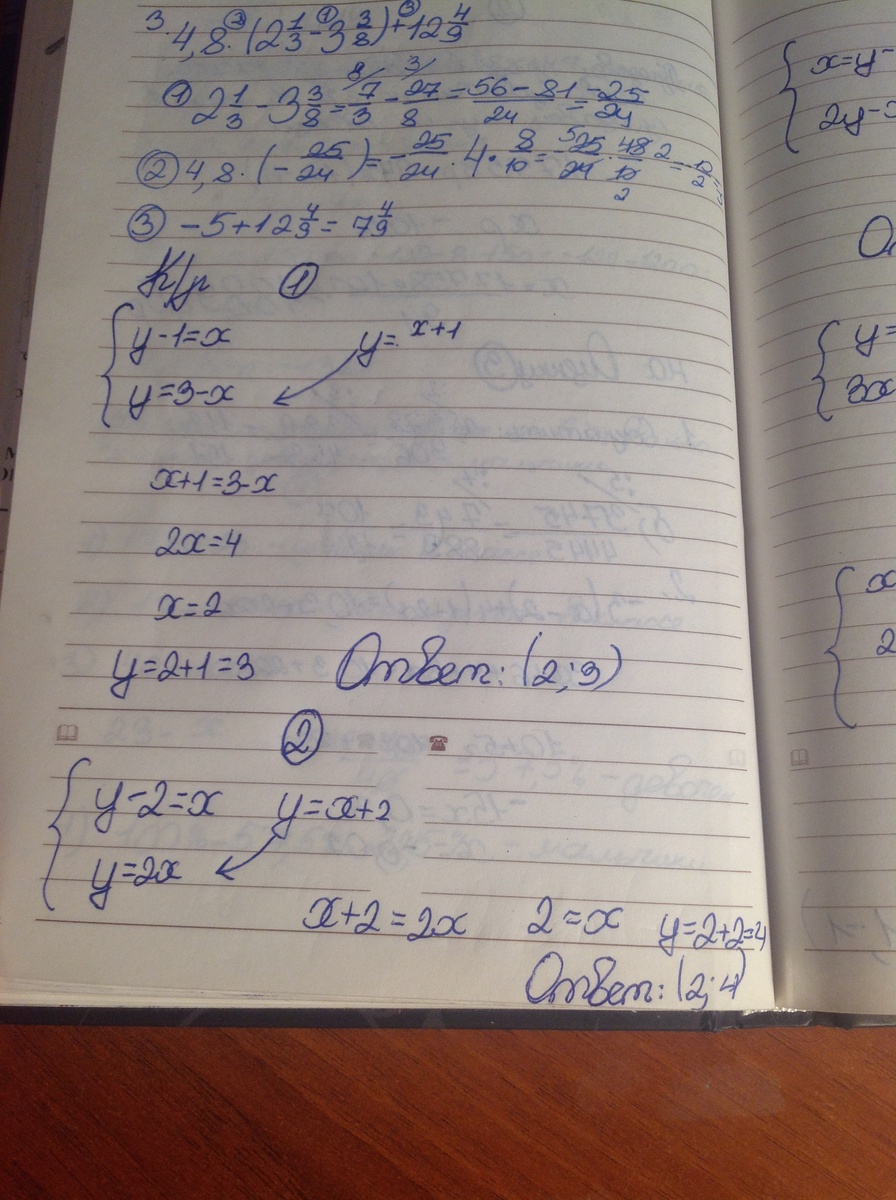 3. 4,8 · (2 1/3 - 3 3/8) + 12 4/9
① 2 1/3 - 3 3/8 = 7/3 - 27/8 = 56-81/24 = -25/24
② 4,8 · (- 25/24) = - 25/24 · 4 · 8/10 = 25/24 · 48/10 = -10/2
③ -5+12 4/9 = 7 4/9
К/р ①
y-1=x y= x+1
y=3-x
x+1=3-x
2x=4
x=2
y=2+1=3 Ответ: (2;3)
②
y-2=x y=x+2
y=2x
x+2=2x 2=x y=2+2=4
Ответ: (2;4)
x=y-
2y-3
y=
3x
x
2